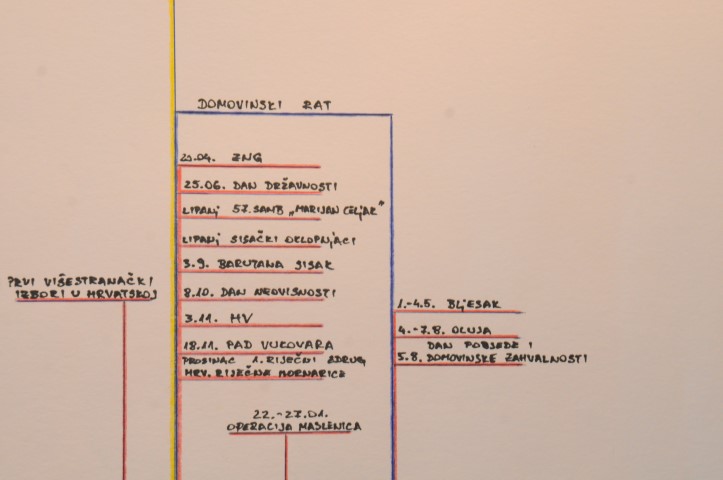 DOMOVINSKI RAT
ZNG
25.06. DAN DRŽAVNOSTI
LIPANJ 57. SAMB „MARIJAN CELJAK"
LIPANJ SISAČKI OKLOPNJACI
3.9. BARUTANA SISAK
8.10. DAN NEOVISNOSTI
3.11. HV
18.11. PAD VUKOVARA
PROSINAC 1. RIJEČNI ZDRUG
HRV. RIJEČNA MORNARICA
PRVI VIŠESTRANAČKI
IZBORI U HRVATSKOJ
1.-4.5. BLJESAK
4.-7.8. OLUJA
DAN POBJEDE I
5.8. DOMOVINSKE ZAHVALNOSTI
22.-27.01.
OPERACIJA MASLENICA